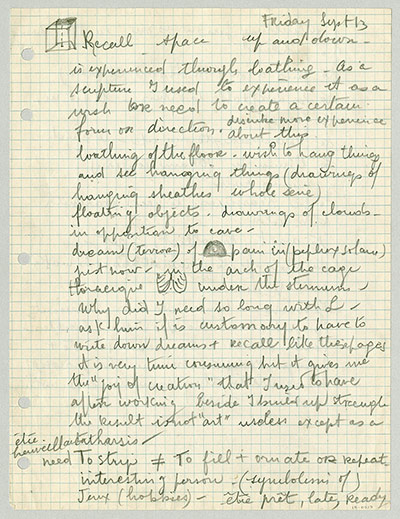 Friday Sept 13
Recall space up and down -
is experienced through loathing - As a
sculpture I used to experience it as a
wish or need to create a certain
form or direction. describe more experience
about this
loathing of the floor. wish to hang things
and see hanging things (drawings of
hanging sheathes whole serie)
floating objects. drawings of clouds -
in opposition to cave -
dream (terror) of pain in (plexus solaro)
just now - the arch of the cage
thoracique under the sternum -
Why did I need so long with L -
ask him if is customary to have to
write down dreams + recall like these pages
it is very time consuming but it gives me
the "joy of creation" that I used to have
after working beside I build up strength
the result is not "art" useless except as a
catharsis -
être
need To strip ≠ To fill + ornate or repeate
interesting person - (symbolism of)
Jeux (hobbies) - être prêt, late, ready